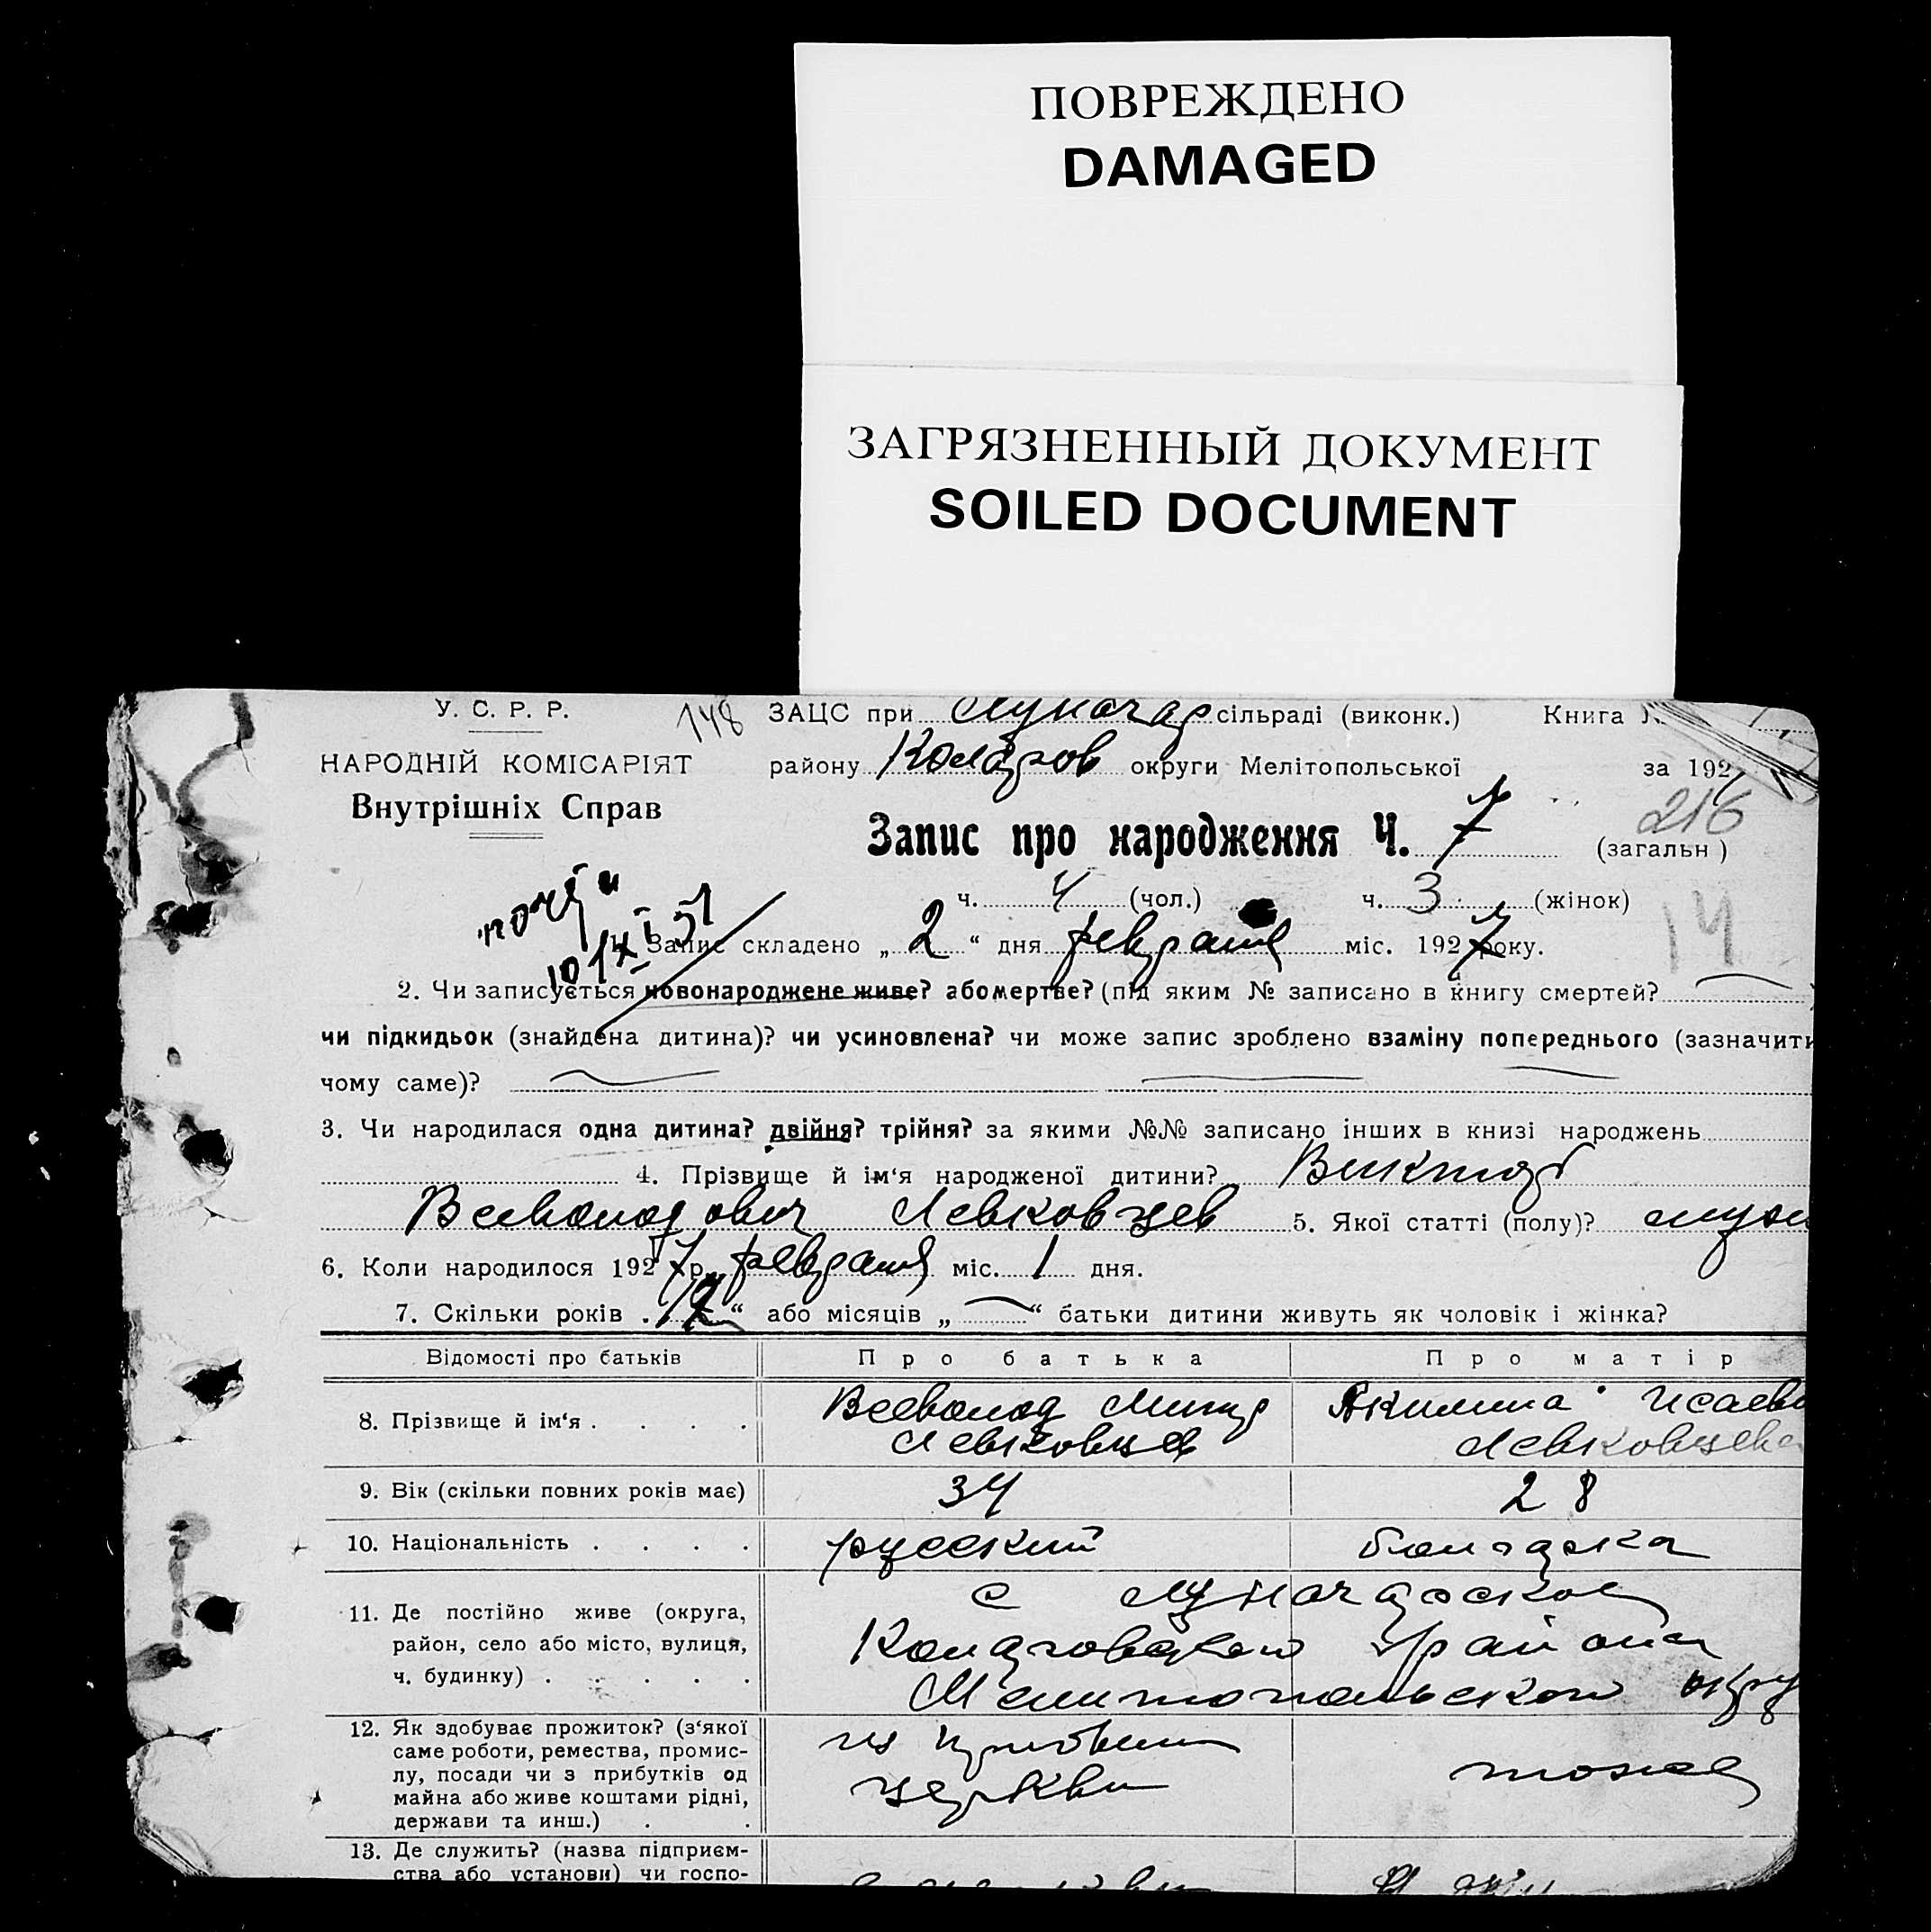 ПОВРЕЖДЕНО
DAMAGED
ЗАГРЯЗНЕННЫЙ ДОКУМЕНТ
SOILED DOCUMENT
У. С. Р. Р.
148
ЗАЦС при Луначар сільраді (виконк.) Книга
НАРОДНІЙ КОМІСАРІЯТ
району Коларов округи Мелітопольської за 1927
Внутрішніх Справ
216
Запис про народження Ч. 7 (загальн)
ч. 4 (чол.) ч. 3 (жінок)
14
Запис складено „ 2 “ дня февраля міс. 1927 року.
2. Чи записується новонароджене живе? або мертве? (під яким № записано в книгу смертей?
чи підкидьок (знайдена дитина)? чи усиновлена? чи може запис зроблено взаміну попереднього (зазначити
чому саме)?
3. Чи народилася одна дитина? двійня? трійня? за якими №№ записано інших в книзі народжень
4. Прізвище й ім‘я народженої дитини? Виктор
Всеволодович Левковцев 5. Якої статті (полу)? муж
6. Коли народилося 1927 р. февраля міс. 1 дня.
7. Скільки років „ “ або місяців „ “ батьки дитини живуть як чоловік і жінка?
Відомості про батьків Про батька Про матір
8. Прізвище й ім‘я . . . . Всеволод Левковцев Акилина Исаев Левковцева
9. Вік (скільки повних років має) 34 28
10. Національність . . . . русский болгарка
11. Де постійно живе (округа,
район, село або місто, вулиця,
ч. будинку) . . . . .
с Луначарское
Коларовского района
Мелитопольской окру
12. Як здобуває прожиток? (з‘якої
саме роботи, ремества, промис-
лу, посади чи з прибутків од
майна або живе коштами рідні,
держави та инш.) . .
церкви
тоже
13. Де служить? (назва підприєм-
ства або установи) чи госпо-